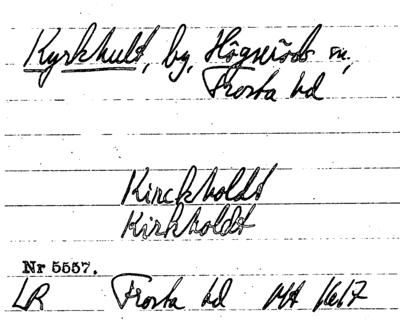 Kyrkhult, by, Högseröds sn,
Frosta hd
Kirckholdt
Kirkholdt
Nr 5557.
LR Frosta hd 1617